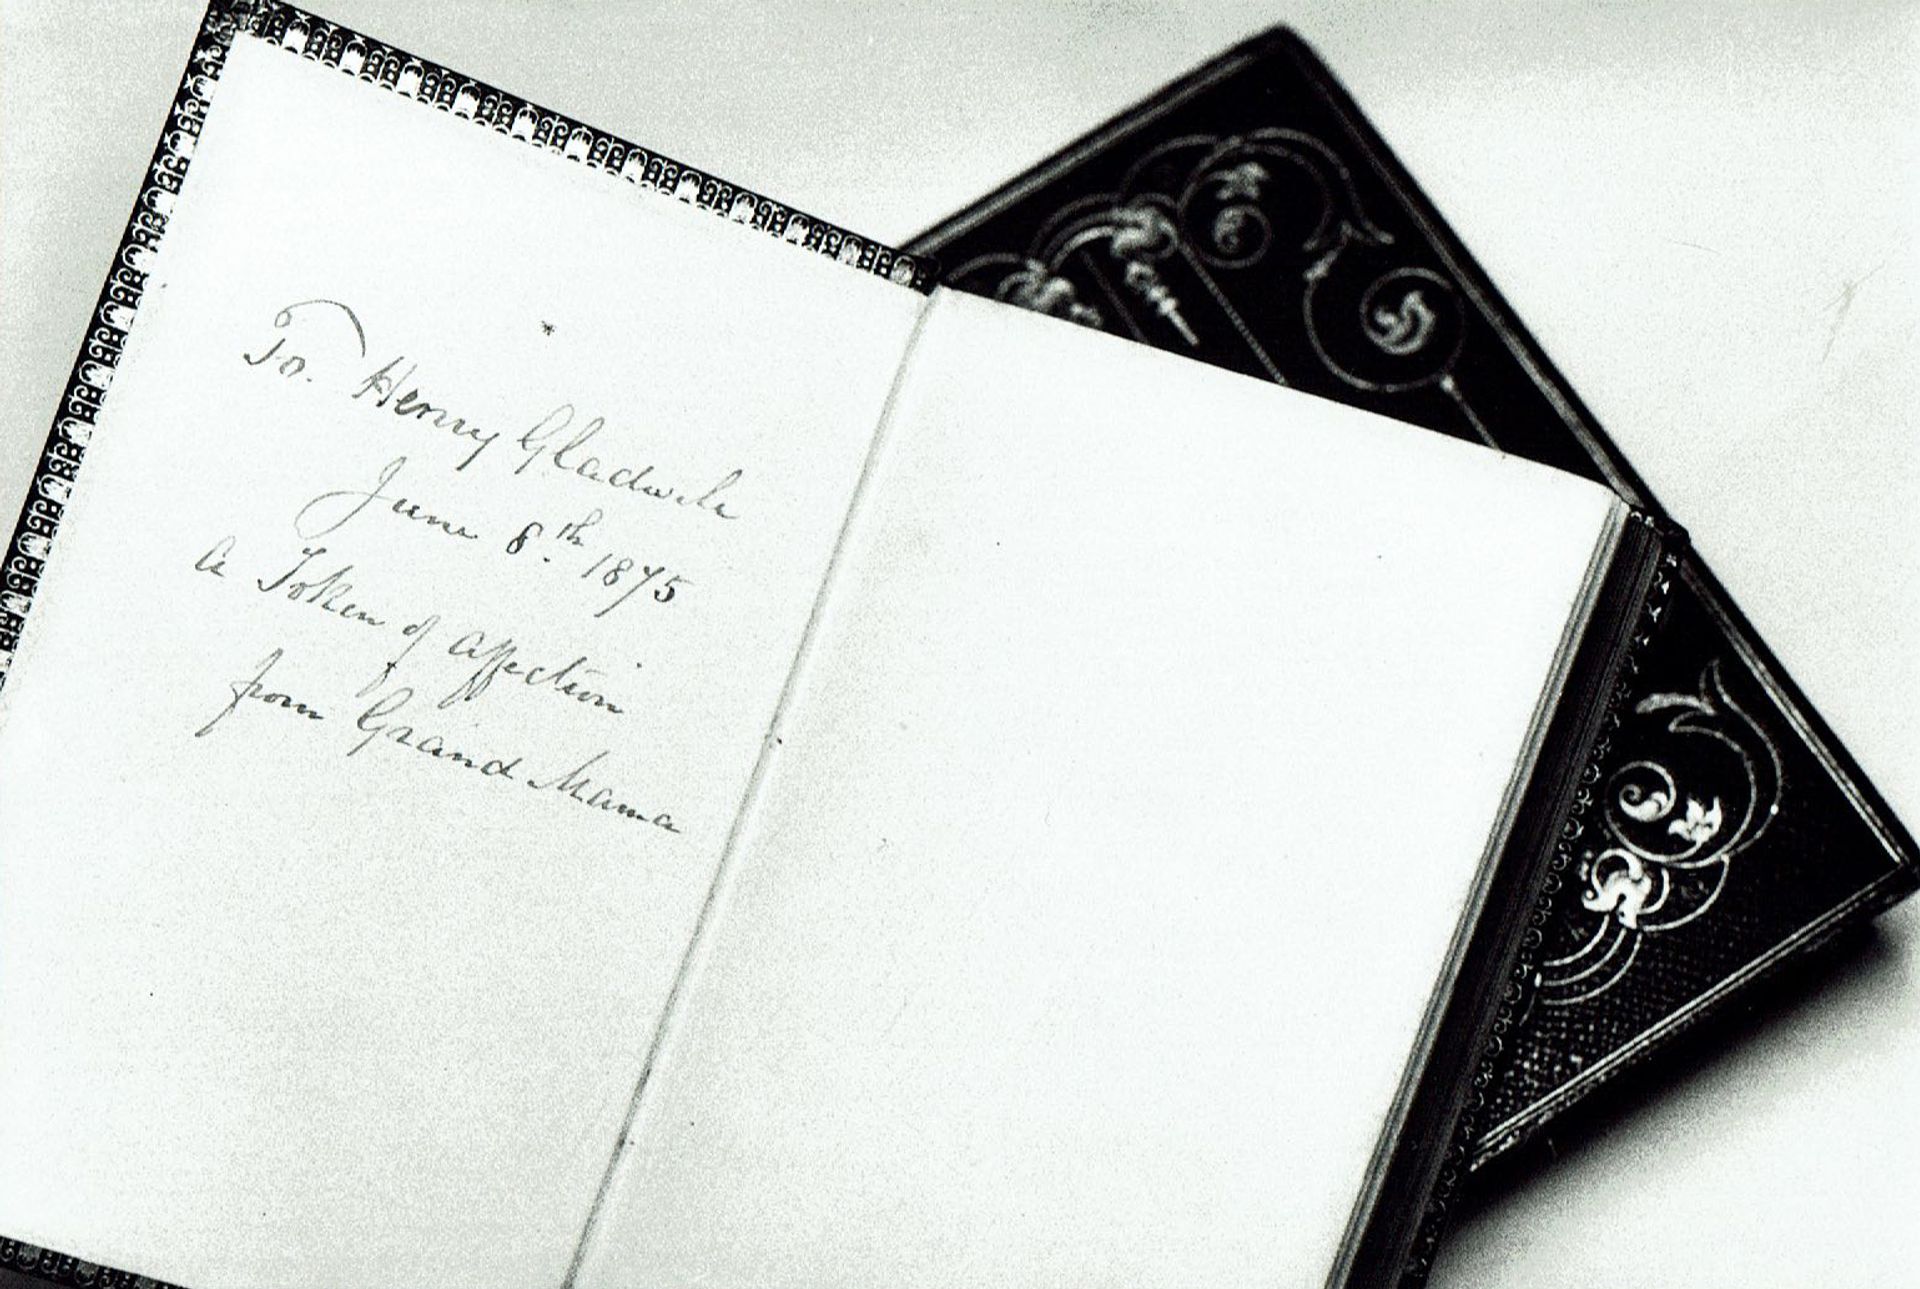 To. Henry Gladwell
June 8.th 1875
a Token of affection
from Grand Mama